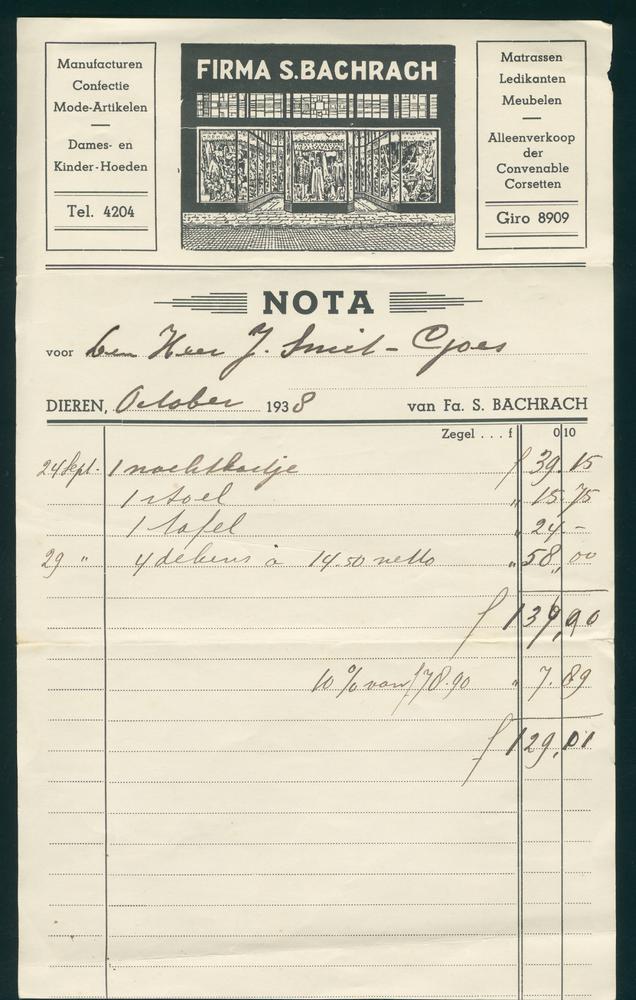 Manufacturen
Confectie
Mode-Artikelen
Dames- en
Kinder-Hoeden
Tel. 4204
FIRMA S.BACHRACH
Matrassen
Ledikanten
Meubelen
Alleenverkoop
der
Convenable
Corsetten
Giro 8909
NOTA
voor den Heer J. Smit - Goes
DIEREN, October 1938 van Fa. S. BACHRACH
Zegel . . . f 0 10
24 Sept. 1 nachtkastje f 39.15
1 stoel " 15.75
1 tafel " 24 -
29 " 4 dekens à 14.50 netto " 58,00
f 139,90
10 % van f 78.90 " 7.89
f 129,01